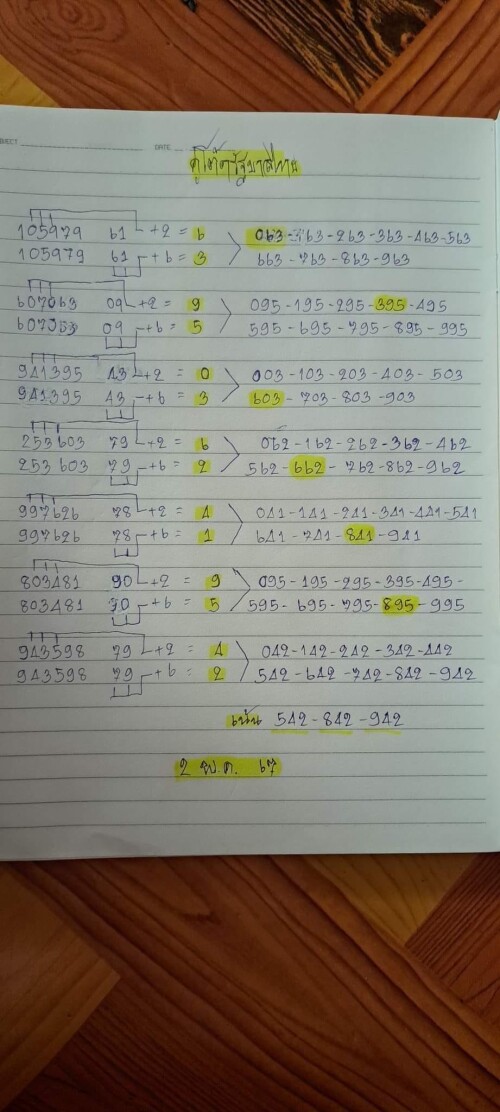 DATE
คู่โต๊ดรัฐบาลไทย
105979 61 +2 = 6 063-163-263-363-463-563
105979 61 +6 = 3 663-763-863-963
607063 09 +2 = 9 095-195-295-395-495
607063 09 +6 = 5 595-695-795-895-995
941395 43 +2 = 0 003-103-203-403-503
941395 43 +6 = 3 603-703-803-903
253603 79 +2 = 6 062-162-262-362-462
253603 79 +6 = 2 562-662-762-862-962
997626 78 +2 = 4 041-141-241-341-441-541
997626 78 +6 = 1 641-741-841-941
803481 90 +2 = 9 095-195-295-395-495-
803481 90 +6 = 5 595-695-795-895-995
943598 79 +2 = 4 042-142-242-342-442
943598 79 +6 = 2 542-642-742-842-942
เน้น 542-842-942
2 พ.ค. 67